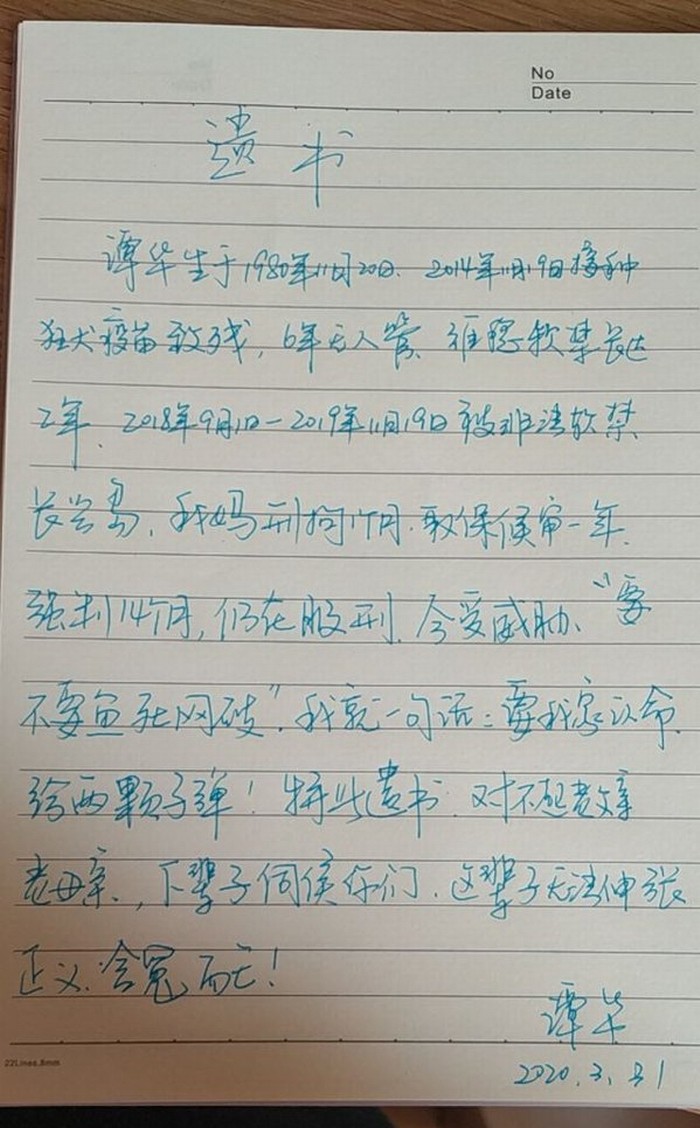 No
Date
遗书
谭华生于1980年11月20日. 2014年11月19日接种
狂犬疫苗致残，6年无人管、维稳软禁长达
2年、2018年9月1日—2019年11月19日被非法软禁
长兴岛，我妈刑拘1个月.取保候审一年.
强判14个月，仍在服刑.今受威胁、“要
不要鱼死网破”.我就一句话：要我家认命.
给两颗子弹！特此遗书.对不起老父亲
老母亲.，下辈子伺候你们.这辈子无法伸张
正义.含冤而亡！
谭华
2020.3.31
22Lines.8mm